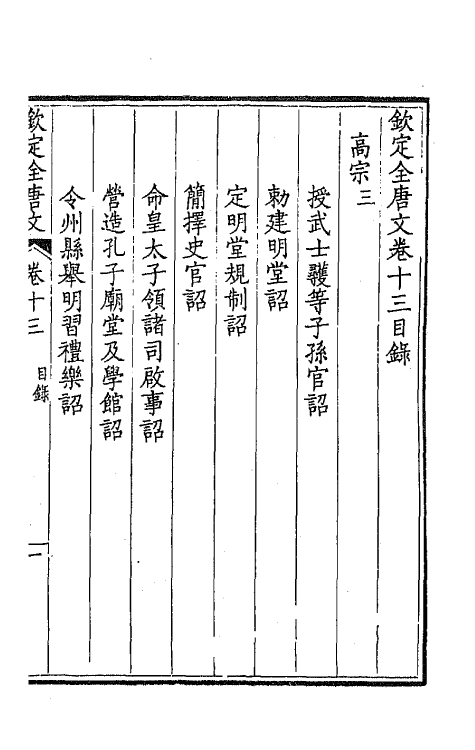 欽定全唐文卷十三目錄
高宗三
授武士彠等子孫官詔
勅建明堂詔
定明堂規制詔
簡擇史官詔
命皇太子領諸司啟事詔
營造孔子廟堂及學館詔
令州縣舉明習禮樂詔
欽定全唐文 卷十三 目錄 一